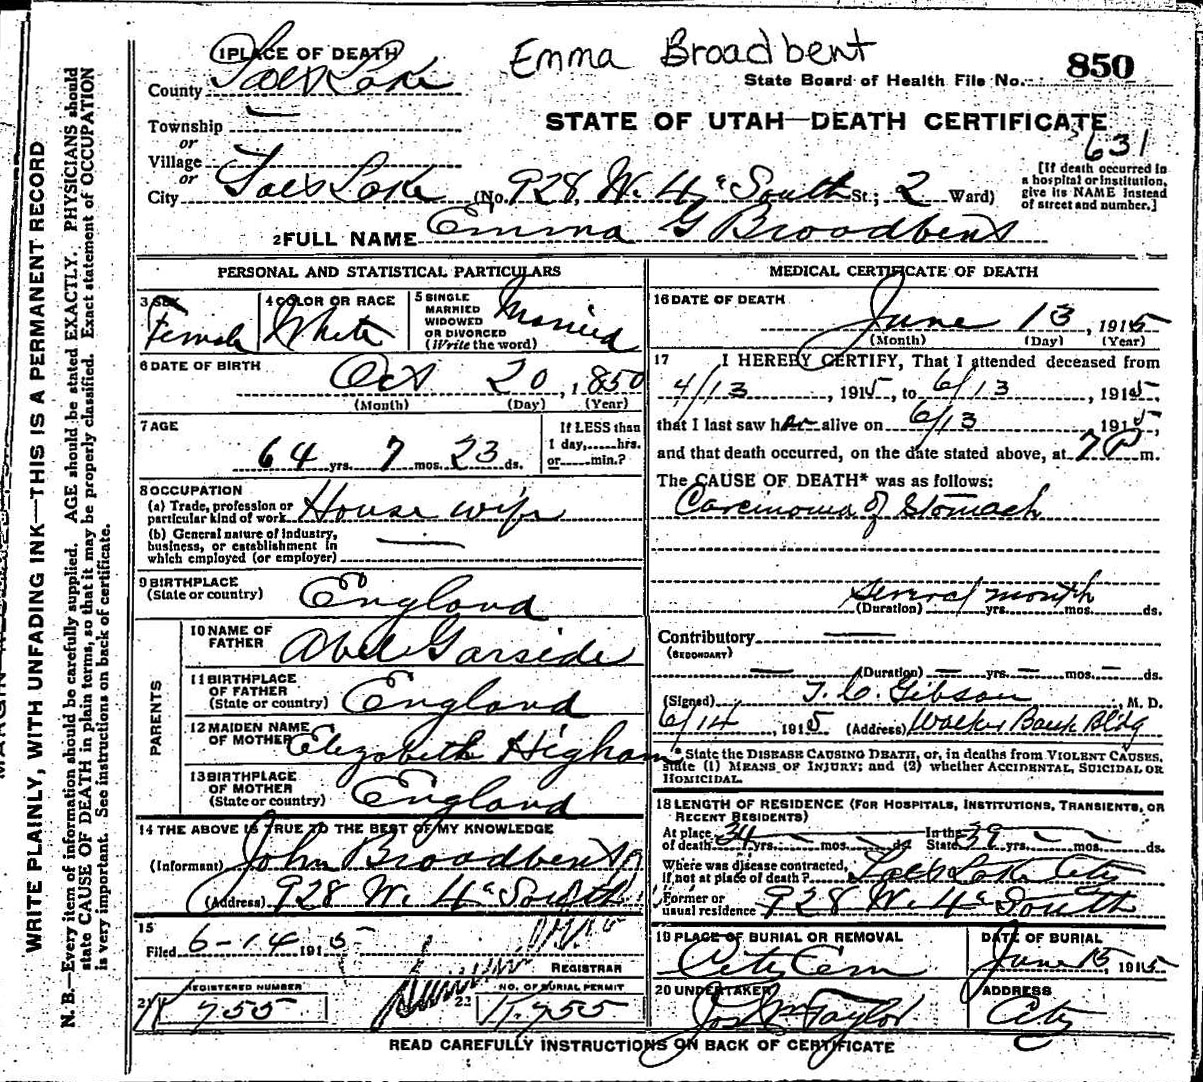 Emma Broadbent
State Board of Health File No. 850
STATE OF UTAH—DEATH CERTIFICATE
631
1 PLACE OF DEATH
County Salt Lake
Township
or
Village
or
City Salt Lake (No. 928 W. 4th South St.; 2 Ward)
[If death occurred in
a hospital or institution,
give its NAME instead
of street and number.]
2 FULL NAME Emma G Broadbent
PERSONAL AND STATISTICAL PARTICULARS
3 SEX
Female
4 COLOR OR RACE
White
5 SINGLE
MARRIED
WIDOWED
OR DIVORCED
(Write the word)
Married
6 DATE OF BIRTH
Oct 20, 1850
(Month) (Day) (Year)
7 AGE
64 yrs. 7 mos. 23 ds.
If LESS than
1 day,......hrs.
or......min.?
8 OCCUPATION
(a) Trade, profession or
particular kind of work House wife
(b) General nature of industry,
business, or establishment in
which employed (or employer)
9 BIRTHPLACE
(State or country) England
PARENTS
10 NAME OF
FATHER Abel Garside
11 BIRTHPLACE
OF FATHER
(State or country) England
12 MAIDEN NAME
OF MOTHER Elizabeth Higham
13 BIRTHPLACE
OF MOTHER
(State or country) England
14 THE ABOVE IS TRUE TO THE BEST OF MY KNOWLEDGE
(Informant) John Broadbent
(Address) 928 W. 4th South
15
Filed 6-14 1915
REGISTRAR
REGISTERED NUMBER
21
755
22
NO. OF BURIAL PERMIT
755
MEDICAL CERTIFICATE OF DEATH
16 DATE OF DEATH
June 13, 1915
(Month) (Day) (Year)
17 I HEREBY CERTIFY, That I attended deceased from
4/13, 1915, to 6/13, 1915,
that I last saw her alive on 6/13 1915,
and that death occurred, on the date stated above, at 7 P m.
The CAUSE OF DEATH* was as follows:
Carcinoma of Stomach
several month
(Duration) yrs. mos. ds.
Contributory
(SECONDARY)
(Duration) yrs. mos. ds.
(Signed) T. C. Gibson M. D.
6/14, 1915 (Address) Walker Bank Bldg
* State the DISEASE CAUSING DEATH, or, in deaths from VIOLENT CAUSES,
state (1) MEANS OF INJURY; and (2) whether ACCIDENTAL, SUICIDAL OR
HOMICIDAL.
18 LENGTH OF RESIDENCE (FOR HOSPITALS, INSTITUTIONS, TRANSIENTS, OR
RECENT RESIDENTS)
At place
of death 34 yrs. mos. ds. In the
State 39 yrs. mos. ds.
Where was disease contracted,
if not at place of death? Salt Lake City
Former or
usual residence 928 W. 4th South
19 PLACE OF BURIAL OR REMOVAL
City Cem
DATE OF BURIAL
June 15, 1915
20 UNDERTAKER
Jos Wm Taylor
ADDRESS
City
READ CAREFULLY INSTRUCTIONS ON BACK OF CERTIFICATE
WRITE PLAINLY, WITH UNFADING INK—THIS IS A PERMANENT RECORD
N. B.—Every item of information should be carefully supplied. AGE should be stated EXACTLY. PHYSICIANS should
state CAUSE OF DEATH in plain terms, so that it may be properly classified. Exact statement of OCCUPATION
is very important. See instructions on back of certificate.